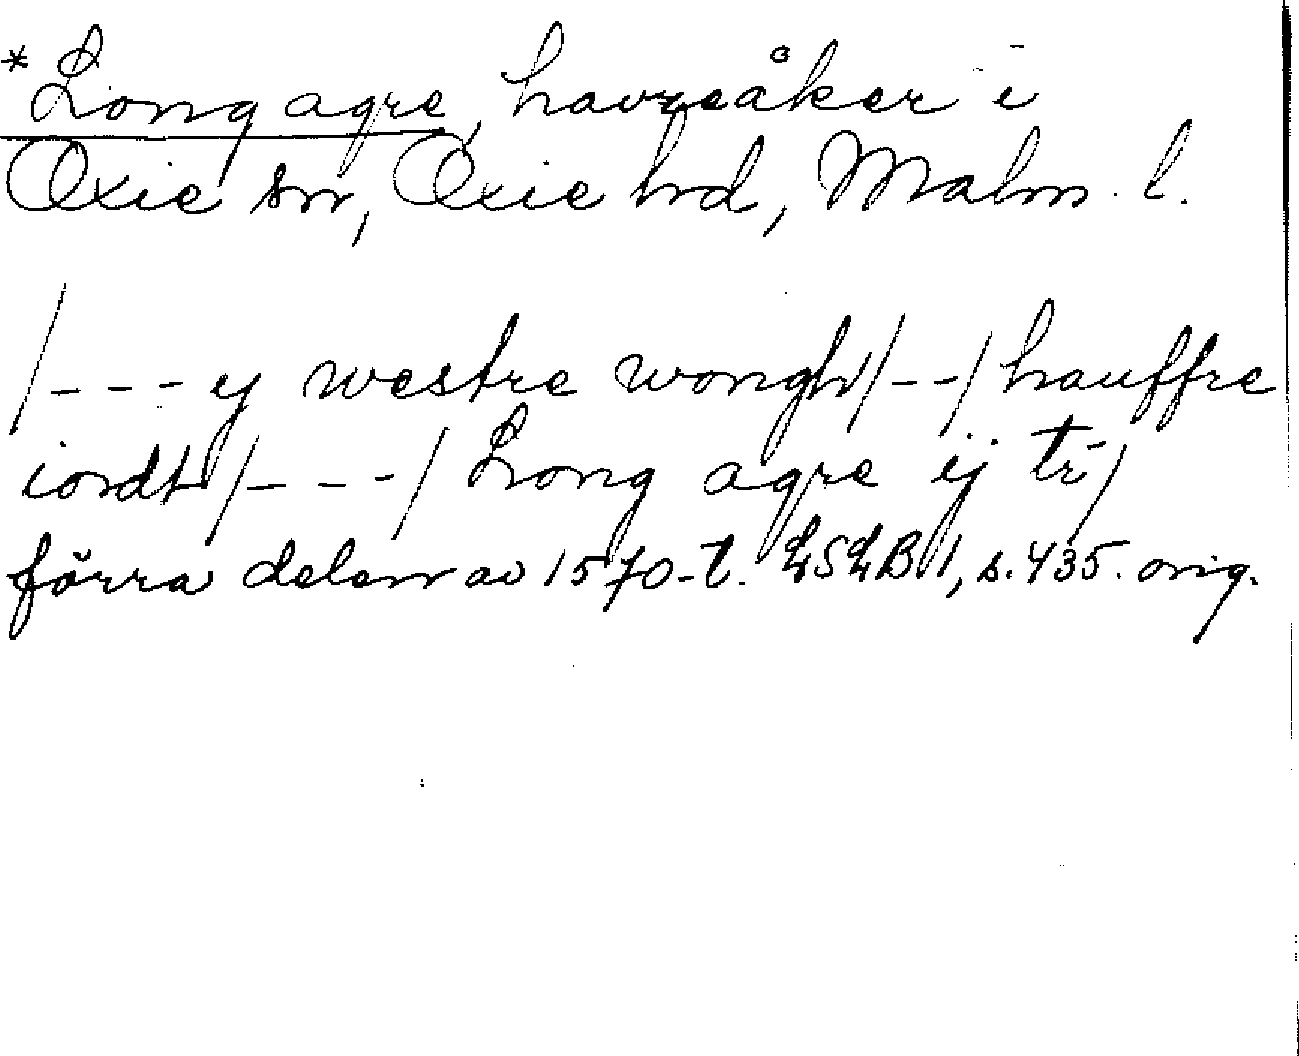 *Long agre, havreåker i
Oxie sn, Oxie hd, Malm. l.
/--- ij westre wongh/--/hauffre
iordt/---/Long agre ij tr/
förra delen av 1570-t. LSLB 1, s. 435. orig.